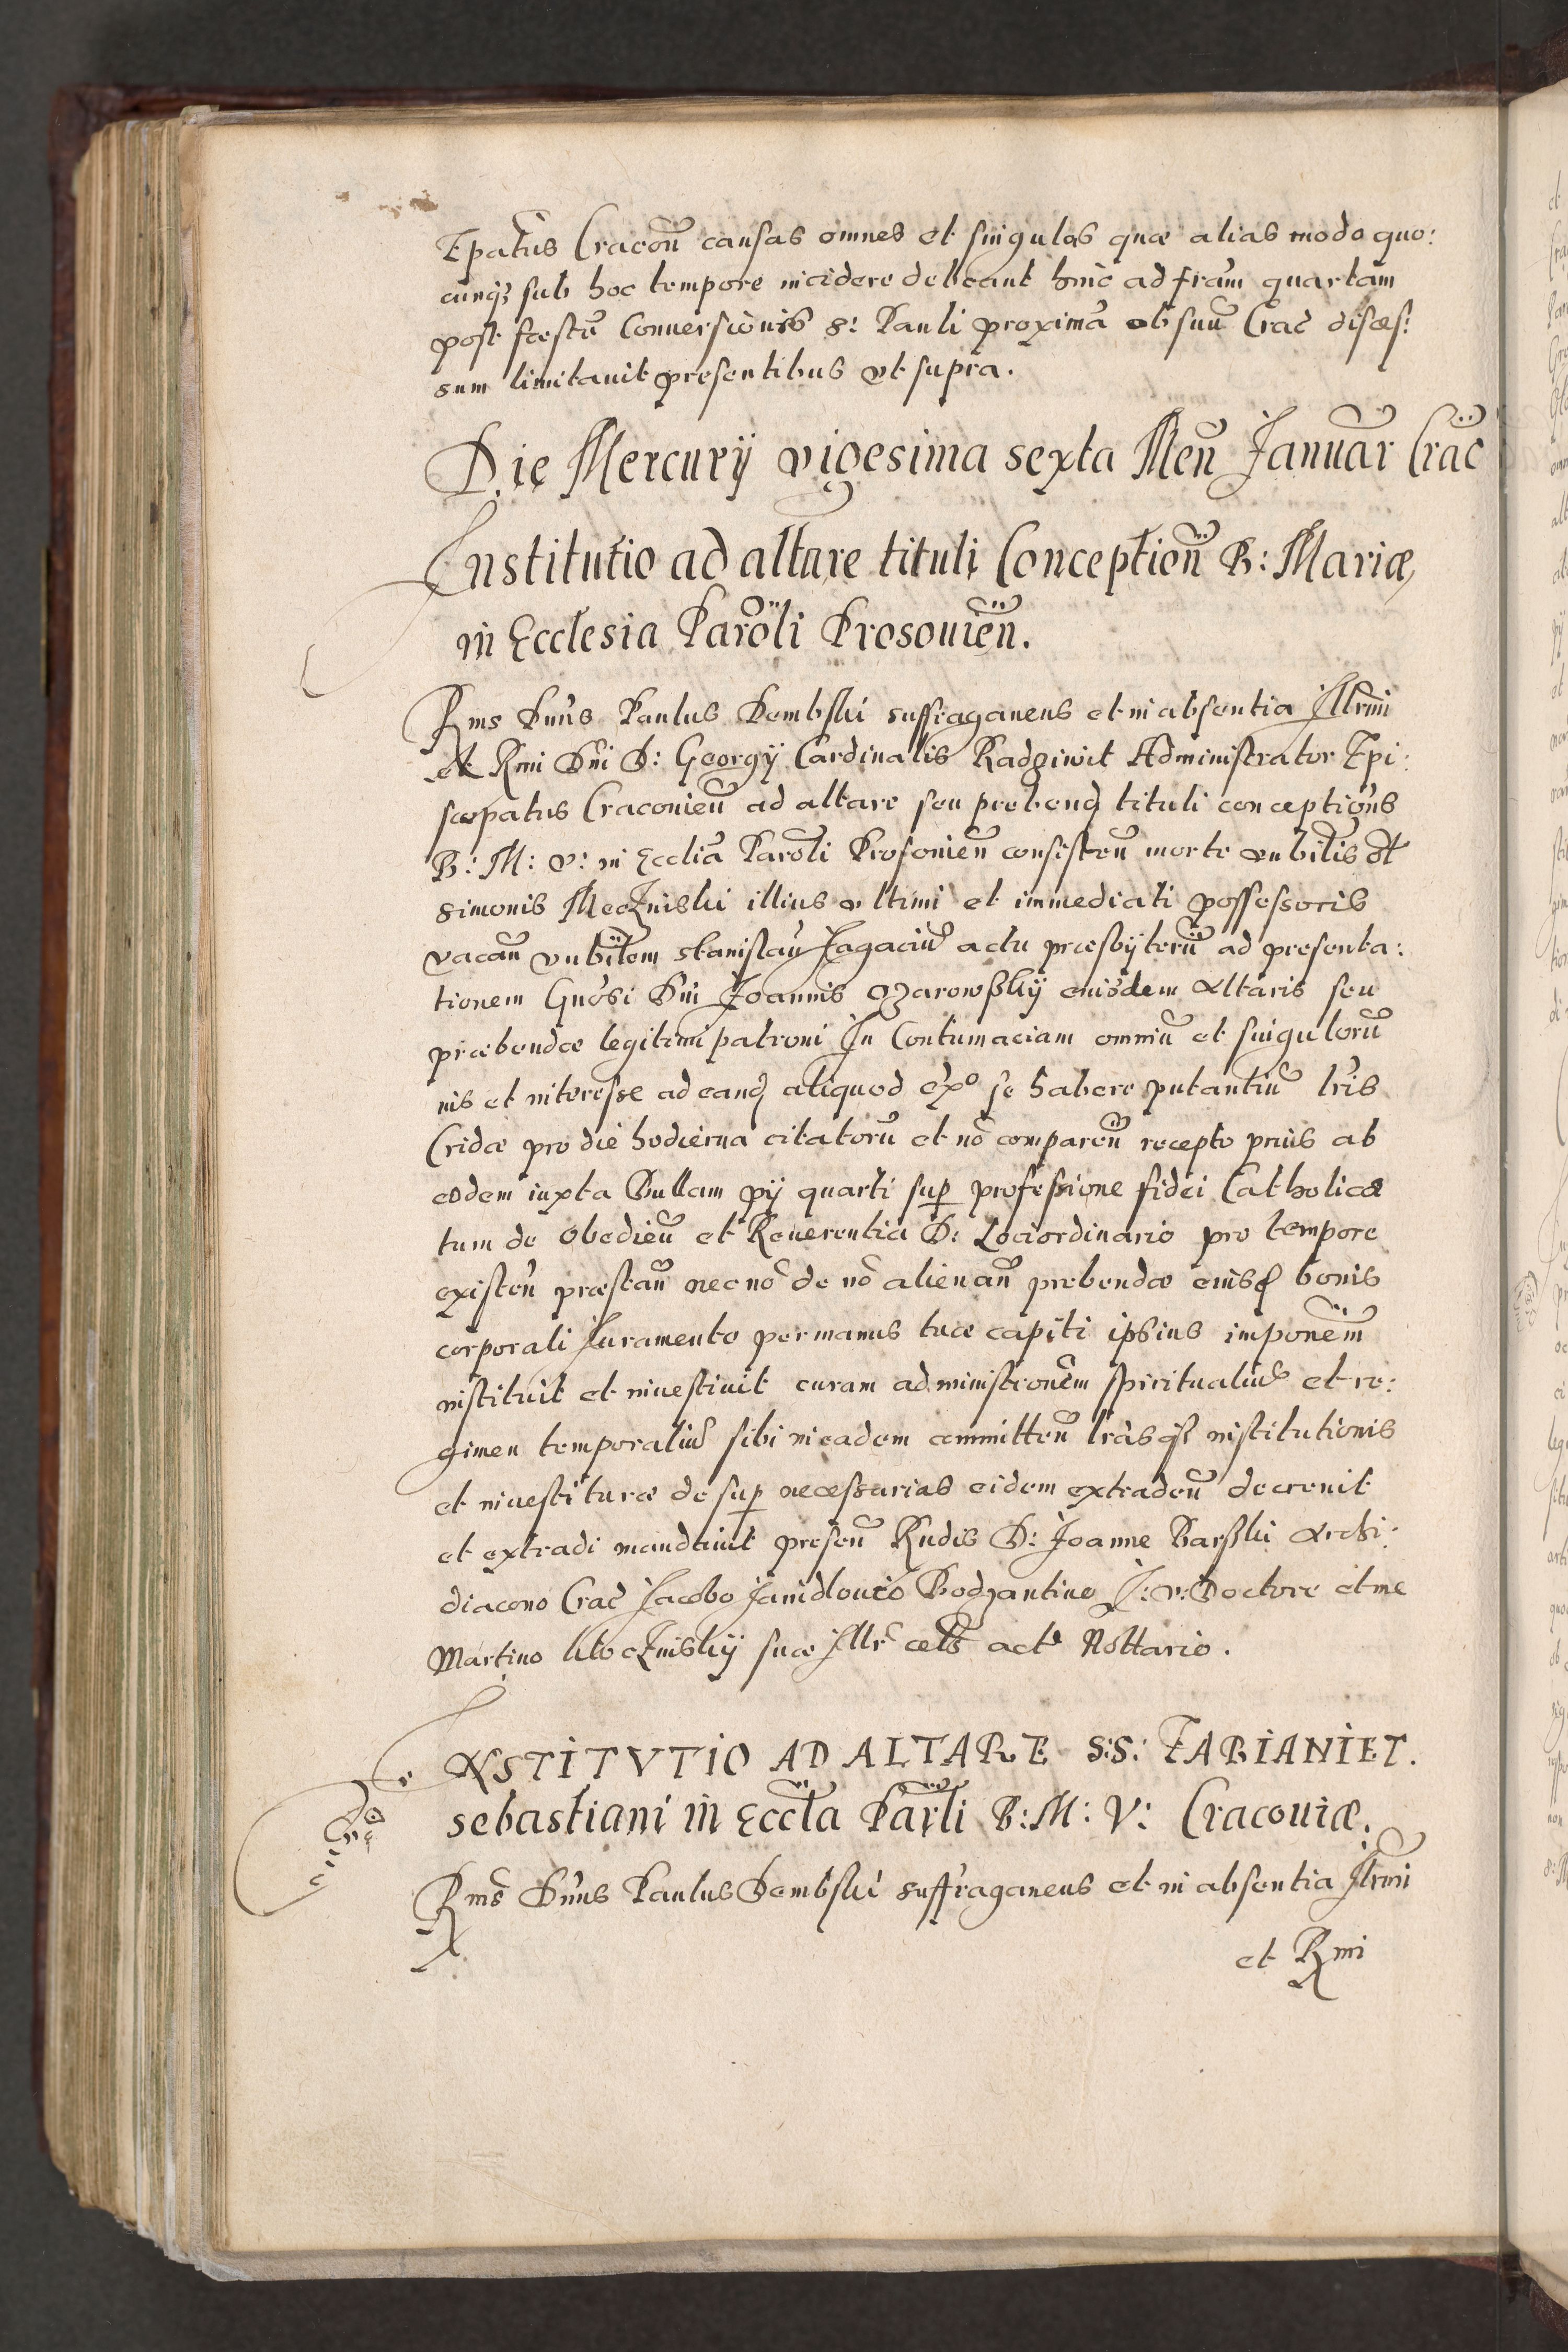 Epatus Cracoń causas omnes et singulas quæ alias modo quo:
cunqꝫ sub hoc tempore incidere debeant hinc ad friam quartam
post festū Conuersionis S: Pauli proximā ob suū Crac disces:
sum limitauit presentibus vt supra.
Die Mercurÿ vigesima sexta Meń Januar Crac
Institutio ad altare tituli Conceptioń B: Mariæ
in Ecclesia Paroli Prosouień.
Rms Dnus Paulus Dembski suffraganeus et in absentia Illrmi
et Rmi Dni D: Georgÿ Cardinalis Radziwil Administrator Epi:
scopatus Craconień ad altare seu prebend tituli conceptionis
B: M: V: in Ecclia Paroli Prosonień consisteń morte vnbilis olt
Simonis Meczinski illius vltimi et immediati possessoris
vacań vnbilem Stanislaū Jagaciū actu præsbÿterū ad presenta:
tionem Gnosi Dni Joannis Ozarowskÿ eiusdem Altaris seu
præbendæ legitimi patroni In Contumaciam omniū et singulorū
ius et interesse ad eand aliquod exo se habere putantiū lris
Cridæ pro die hodierna citatorū et nō compareń recepto prius ab
eodem iuxta Bullam pÿ quarti sup professione fidei Catholicæ
tum de Obedień et Reuerentia D: Lociordinario pro tempore
existeń præstań nec nō de nō alienań prebendæ eiusd bonis
corporali Juramento per manus suæ capiti ipsius imponem
instituit et inuestiuit curam administionem spiritualiū et re:
gimen temporaliū sibi in eadem committeń lrasqꝫ institutionis
et inuestituræ de sup necessarias eidem extradeń decreuit
et extradi mandauit preseń Rndis D: Joanne Barski Archi:
diacono Crac Jacobo Janidlouio Bodzantino J: v: Doctore et me
Martino Kloczinskÿ suæ Illr cels act Nottario.
INSTITVTIO AD ALTARE S:S: FABIANI ET.
sebastiani in Eccla Parli B: M: V: Cracouiæ.
Rms Dnus Paulus Dembski suffraganeus et in absentia Ilrmi
et Rmi